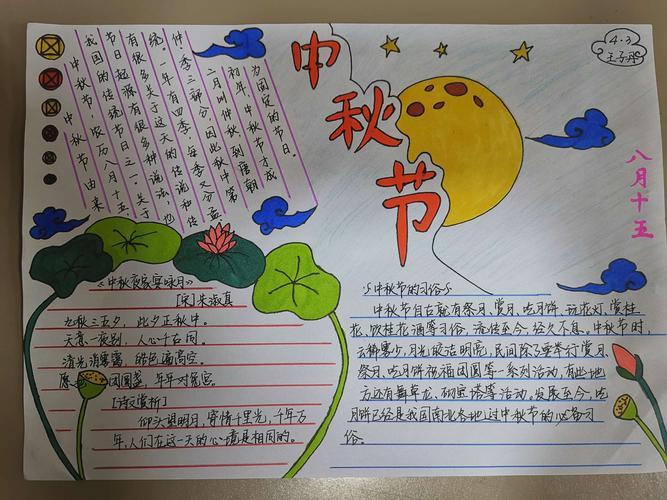 中秋节
4.3
八月十五
中秋节由来
中秋节,农历八月十五,
我国的传统节日之一。关于
节日起源有很多种说法,也
有很多关于这天的传说和传
统。一年有四季,每季又分孟
仲季三部分,因此秋中第
二月叫仲秋,到唐朝
初年,中秋节才成
为固定的节日。
《中秋夜家宴咏月》
[宋]朱淑真
九秋三五夕,此夕正秋中。
天意一夜别,人心千古同。
清光消雾霭,皓色遍高空。
愿 团圆盏,年年对兔宫。
[诗文赏析]
仰头望明月,寄情千里光,千年万
年,人们在这一天的心境是相同的。
中秋节的习俗
中秋节自古就有祭月、赏月、吃月饼、玩花灯、赏桂
花、饮桂花酒等习俗,流传至今,经久不息。中秋节时,
云稀雾少,月光皎洁明亮,民间除了要举行赏月、
祭月、吃月饼祝福团圆等一系列活动,有些地
方还有舞草龙,砌宝塔等活动。发展至今,吃
月饼已经是我国南北各地过中秋节的必备习
俗。